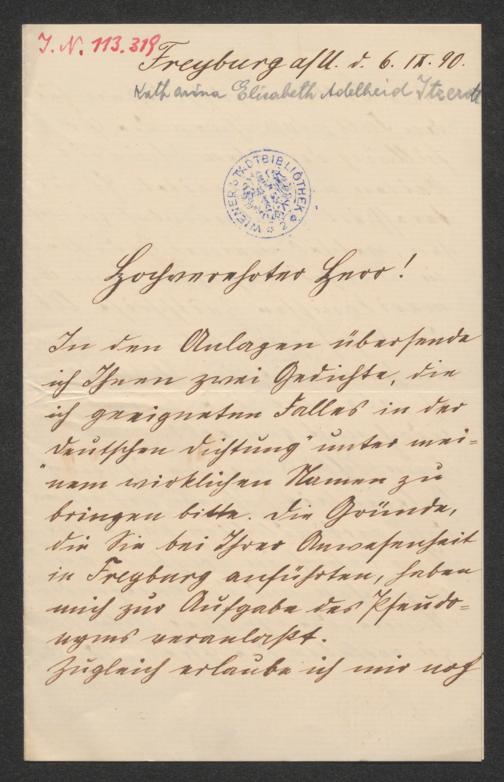 J. N. 113.319
Freyburg a/U. d. 6. IX. 90.
Katharina Elisabeth Adelheid Itzerott
WIENER STADTBIBLIOTHEK
Hochverehrter Herr!
In den Anlagen übersende
ich Ihnen zwei Gedichte, die
ich geeigneten Falles in der
„Deutschen Dichtung" unter mei=
nem wirklichen Namen zu
bringen bitte. Die Gründe,
die Sie bei Ihrer Anwesenheit
in Freyburg anführten, haben
mich zur Aufgabe des Pseudo=
nyms veranlaßt.
Zugleich erlaube ich mir noch